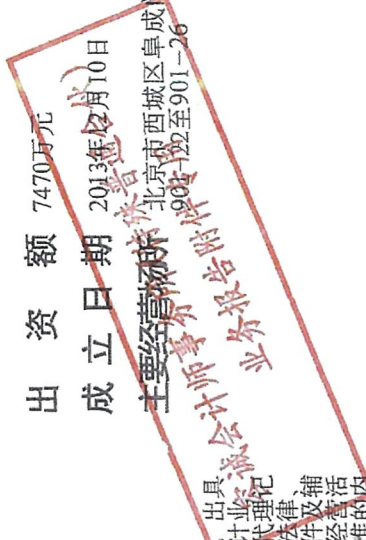 出资额 7470万元
成立日期 2013年12月10日
主要经营场所 北京市西城区阜成
901-22至901-26
诚会计师事务所（特殊普通合伙）
业务报告附件专用
出具
计业
代理记
法律、
件及辅
经营活
准的内